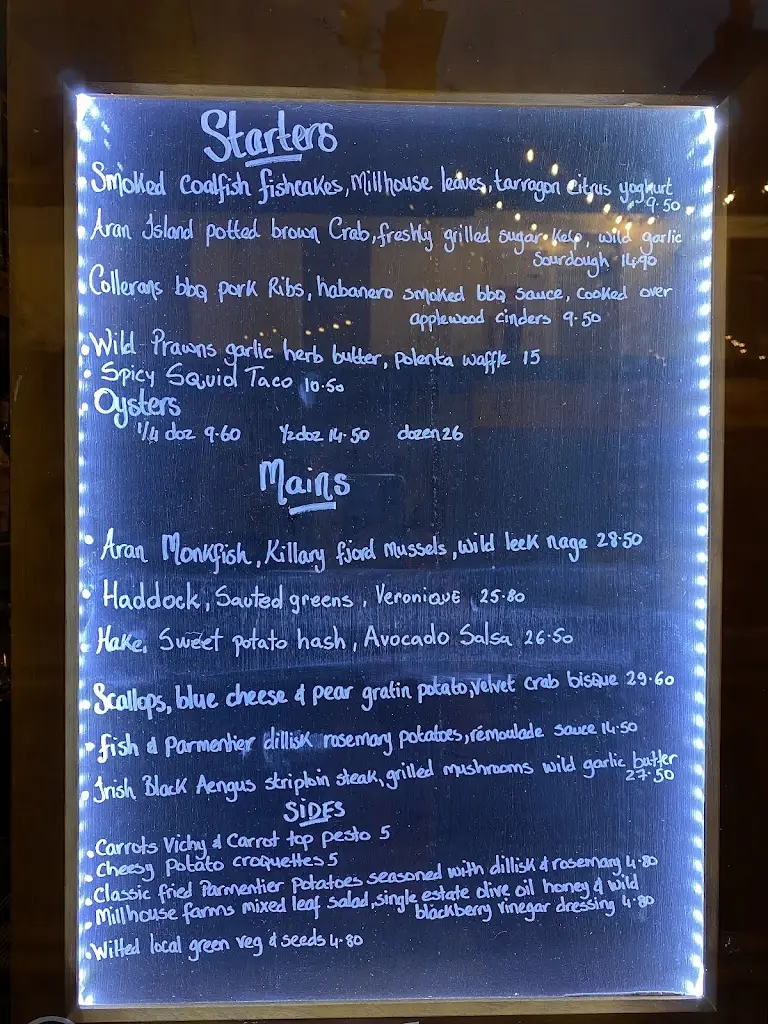 Starters
• Smoked Coalfish fishcakes, Millhouse leaves, tarragon citrus yoghurt
9.50
• Aran Island potted brown Crab, freshly grilled sugar kelp, wild garlic
Sourdough 14.90
• Collerans bbq pork Ribs, habanero smoked bbq sauce, cooked over
applewood cinders 9.50
• Wild Prawns garlic herb butter, polenta waffle 15
• Spicy Squid Taco 10.50
• Oysters
1/4 doz 9.60 1/2 doz 14.50 dozen 26
Mains
• Aran Monkfish, Killary fjord Mussels, wild leek nage 28.50
• Haddock, Sauted greens, Veronique 25.80
• Hake, Sweet potato hash, Avocado Salsa 26.50
• Scallops, blue cheese & pear gratin potato, velvet crab bisque 29.60
• fish & Parmentier dillisk rosemary potatoes, rémoulade sauce 14.50
• Irish Black Aengus striploin steak, grilled mushrooms wild garlic butter
27.50
SIDES
• Carrots Vichy & Carrot top pesto 5
• Cheesy Potato croquettes 5
• Classic fried Parmentier Potatoes seasoned with dillisk & rosemary 4.80
• Millhouse farms mixed leaf salad, single estate olive oil honey & wild
blackberry vinegar dressing 4.80
• Wilted local green veg & seeds 4.80